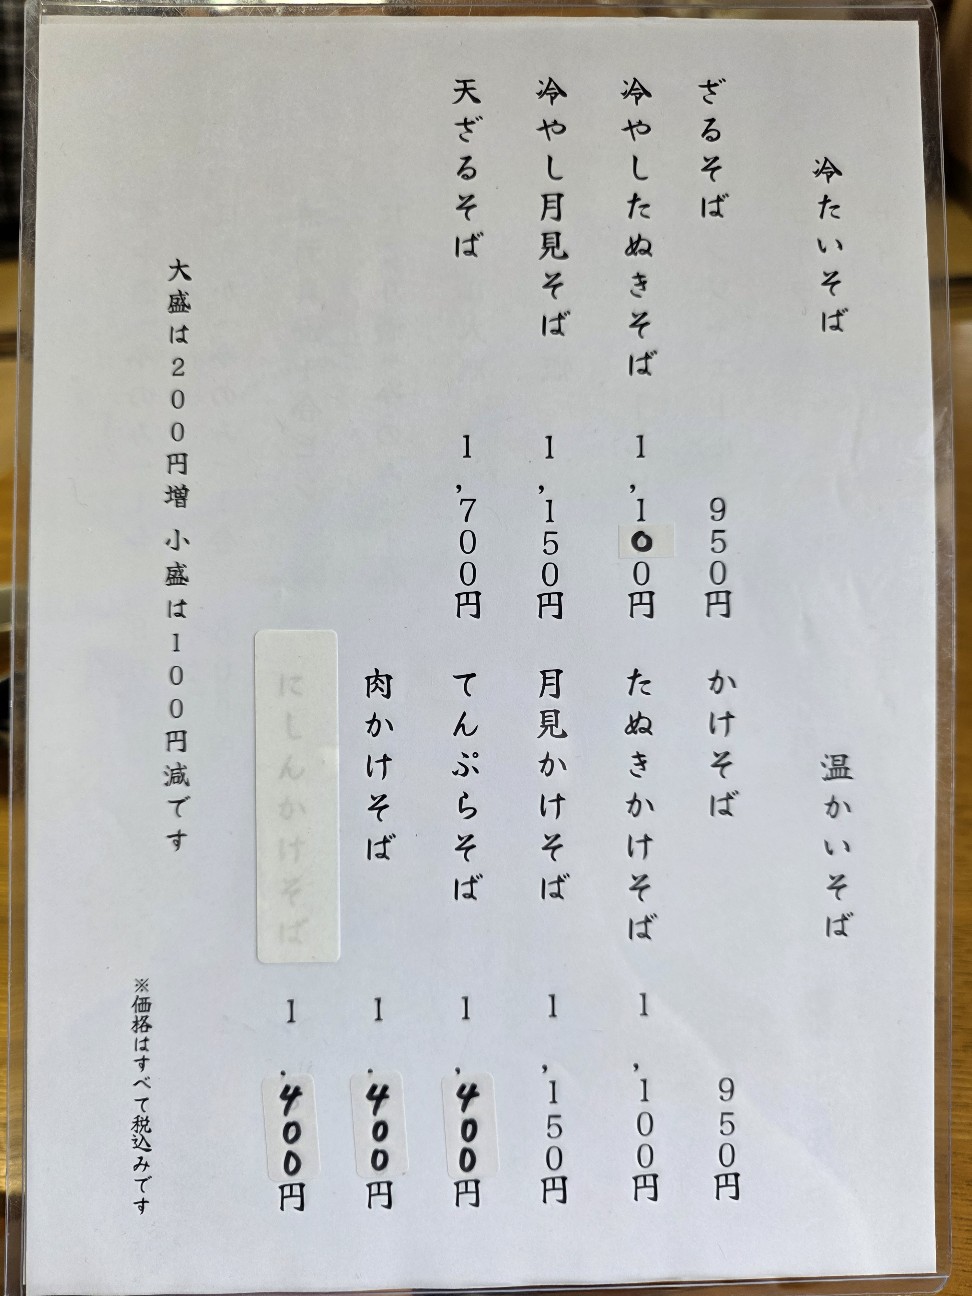 冷たいそば
ざるそば 950円
冷やしたぬきそば 1,100円
冷やし月見そば 1,150円
天ざるそば 1,700円
温かいそば
かけそば 950円
たぬきかけそば 1,100円
月見かけそば 1,150円
てんぷらそば 1,400円
肉かけそば 1,400円
にしんかけそば 1,400円
大盛は200円増 小盛は100円減です
※価格はすべて税込みです